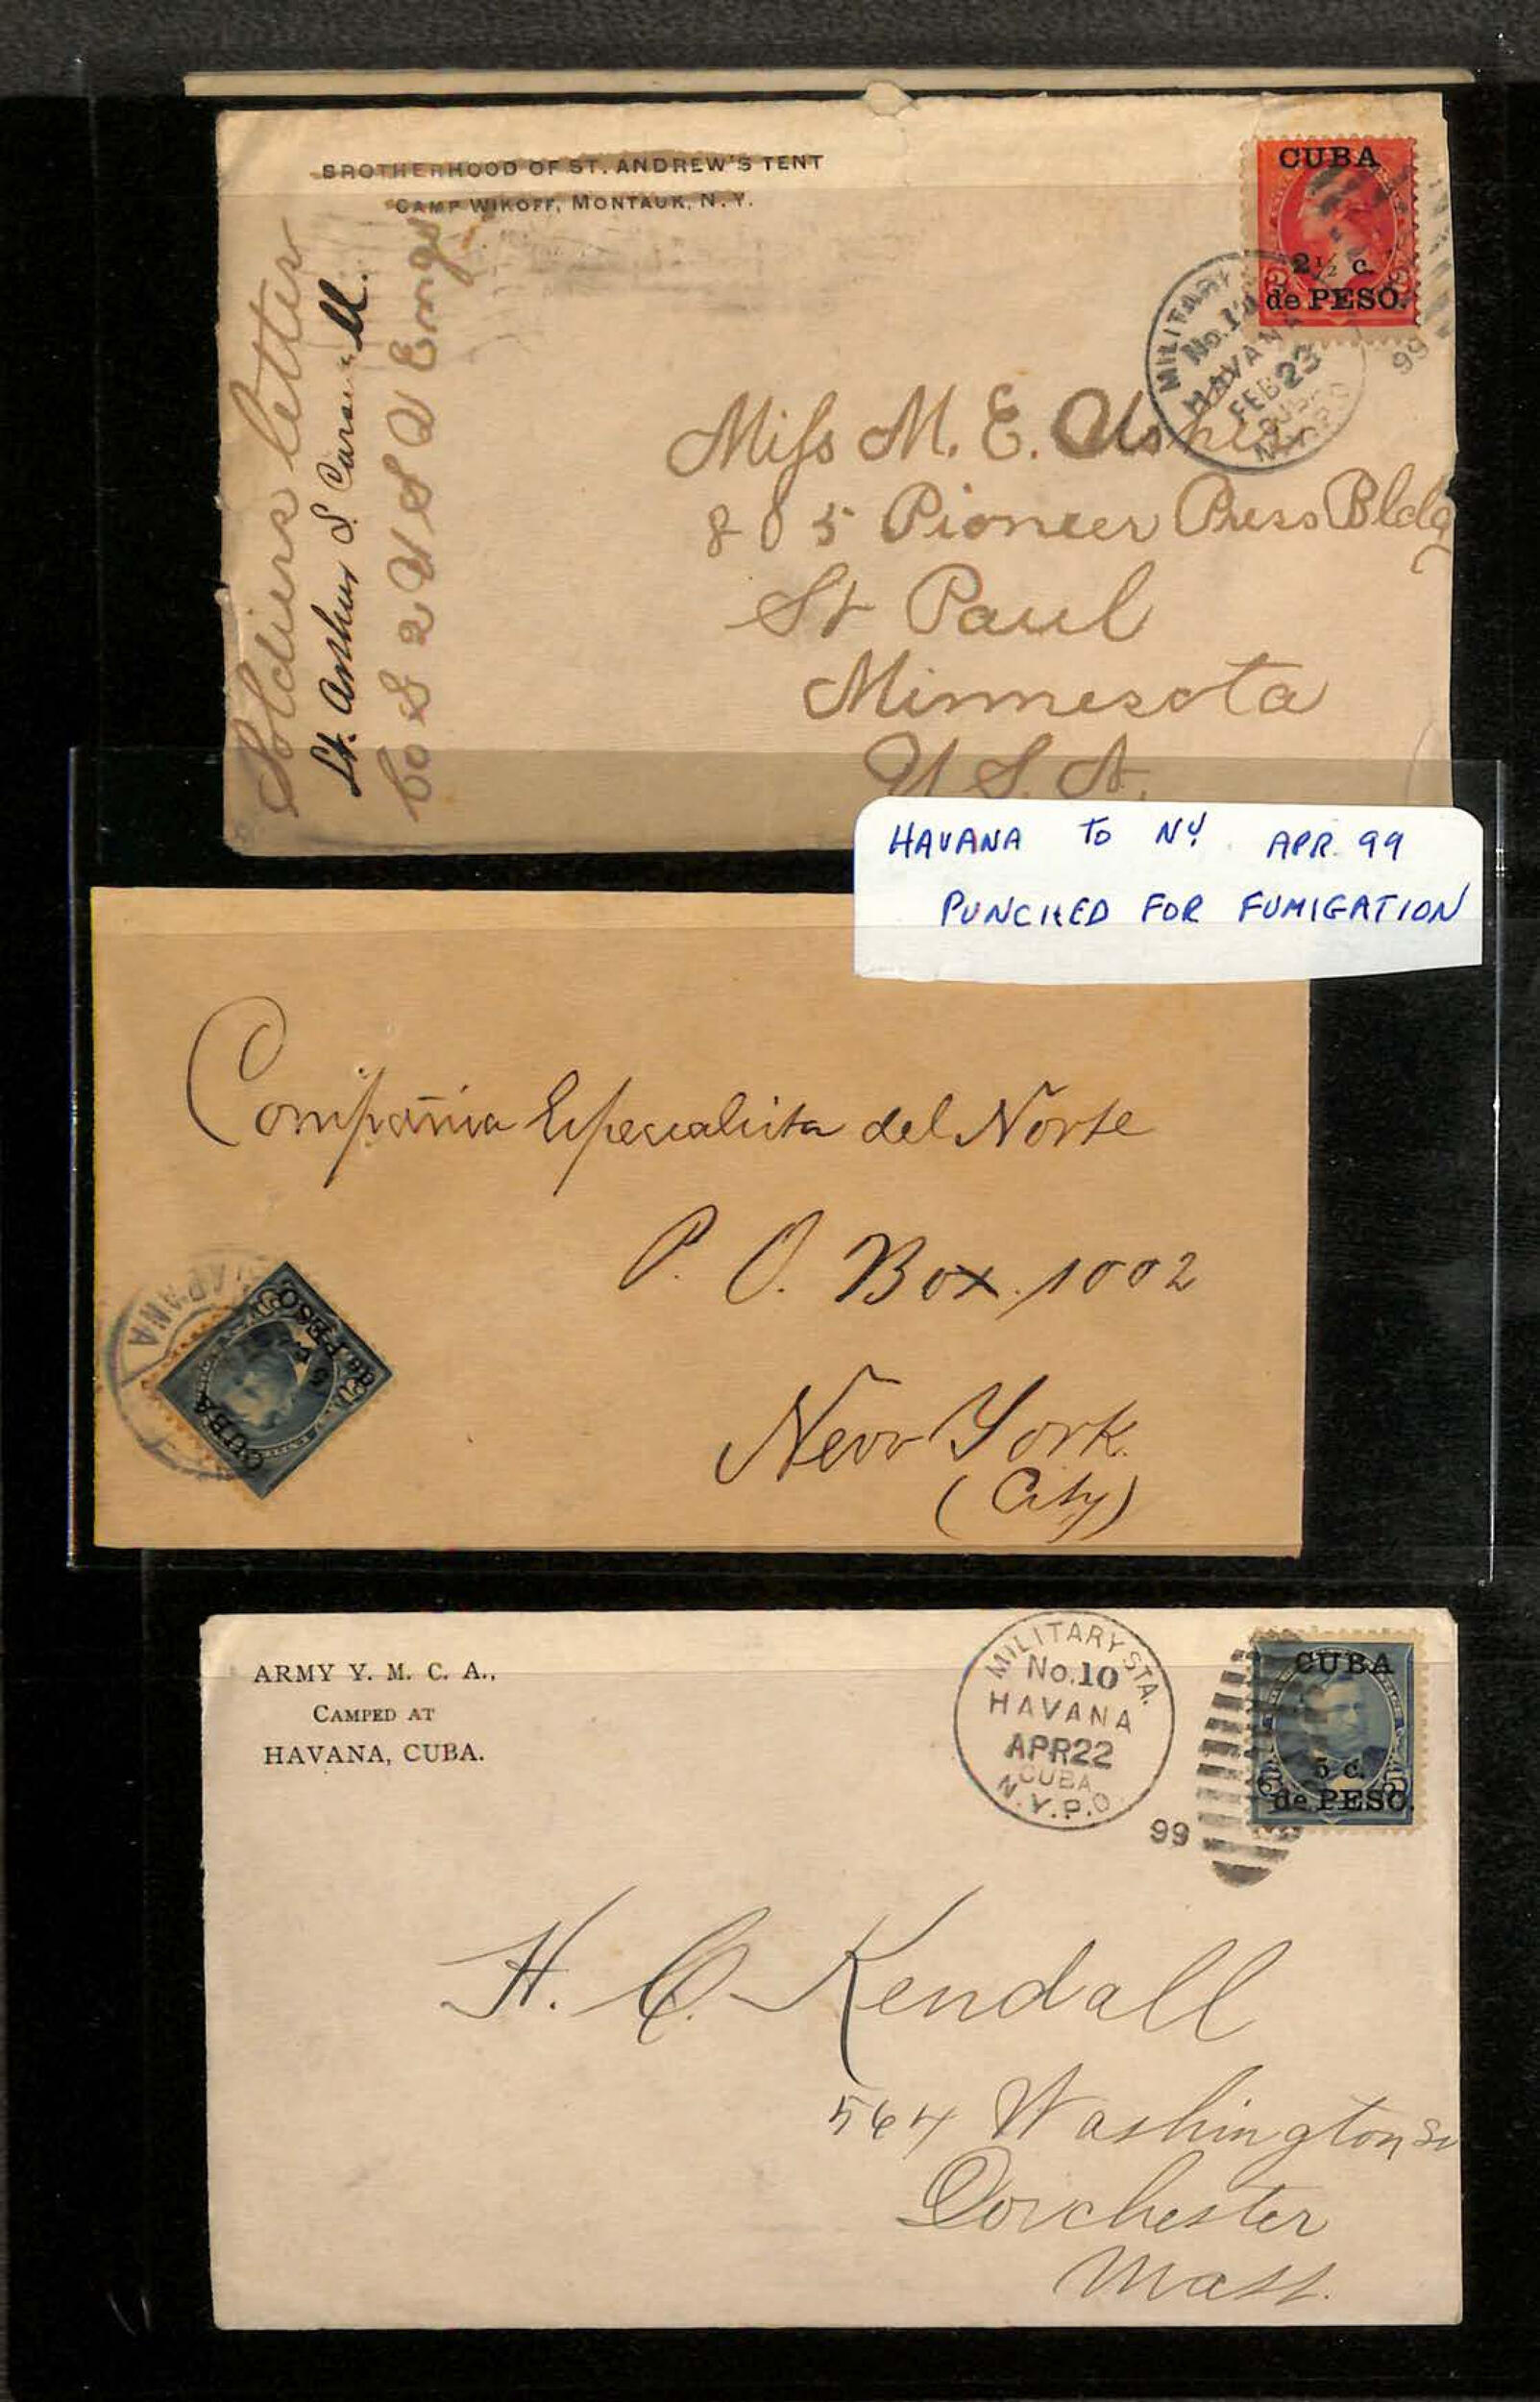 BROTHERHOOD OF ST. ANDREW'S TENT
CAMP WIKOFF, MONTAUK, N.Y.
Soldiers letter
Lt. Arthur S.
Co 2 U S V Engs
CUBA
2½ c.
de PESO.
MILITARY
HAVANA
FEB 23
99
Miss M. E.
805 Pioneer Press Bldg
St Paul
Minnesota
U. S. A.
HAVANA TO NY APR. 99
PUNCHED FOR FUMIGATION
Compañia Especialista del Norte
P. O. Box. 1002
New York.
(City)
CUBA
5 c.
de PESO
ARMY Y. M. C. A.,
CAMPED AT
HAVANA, CUBA.
MILITARY STA.
No. 10
HAVANA
APR 22
CUBA
N.Y.P.O.
99
CUBA
5 c.
de PESO.
H. C. Kendall
564 Washington St
Dorchester
Mass.